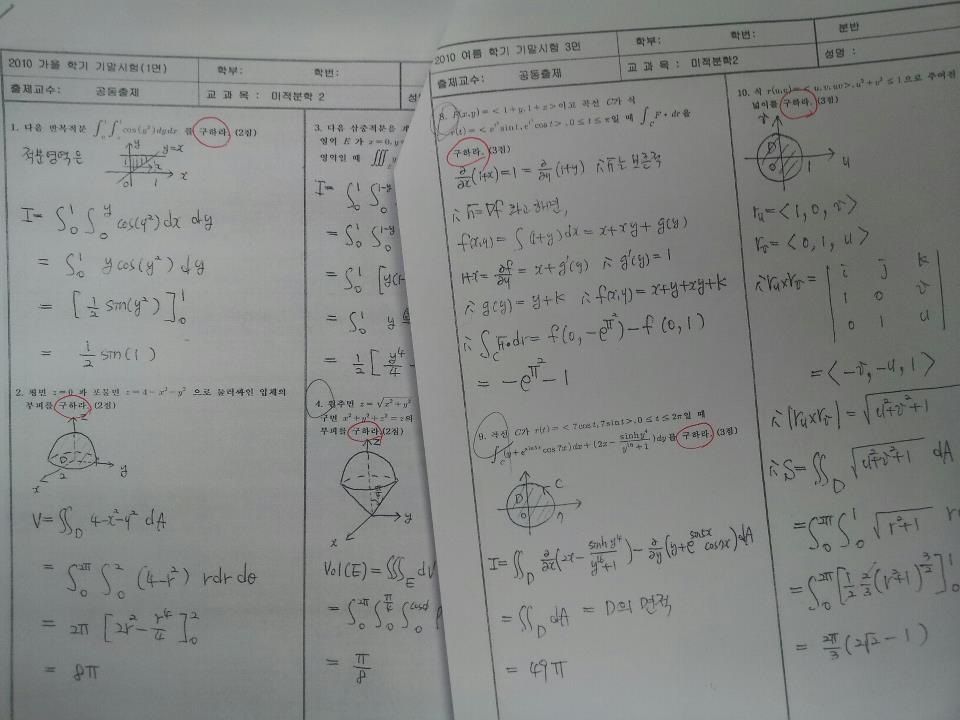 2010 가을 학기 기말시험(1면)
학부:
학번:
출제교수: 공동출제
교 과 목 : 미적분학 2
1. 다음 반복적분 ∫₀¹∫ₓ¹ cos(y²)dydx 를 구하라. (2점)
적분영역은
y
y=x
x
0
1
I = ∫₀¹ ∫₀^y cos(y²) dx dy
= ∫₀¹ y cos(y²) dy
= [ 1/2 sin(y²) ]₀¹
= 1/2 sin(1)
2. 평면 z=0 과 포물면 z=4-x²-y² 으로 둘러싸인 입체의
부피를 구하라. (2점)
z
D
2
y
x
V = ∬_D 4-x²-y² dA
= ∫₀^2π ∫₀² (4-r²) r dr dθ
= 2π [ 2r² - r⁴/4 ]₀²
= 8π
3. 다음 삼중적분을
영역 E 가 x=0, y
영역일 때 ∭
I = ∫₀¹ ∫₀^1-y
= ∫₀¹ ∫₀^1-y
= ∫₀¹ [y(1-
= ∫₀¹ y
= 1/2 [ y⁴/4
4. 원주면 z = √x²+y²
구면 x²+y²+z²=z
부피를 구하라. (2점)
z
π/4
y
x
Vol(E) = ∭_E dV
= ∫₀^2π ∫₀^π/4 ∫₀^cosφ
= π/8
2010 여름 학기 기말시험 3면
학부:
학번:
분반
출제교수: 공동출제
교 과 목 : 미적분학2
성명 :
8. F(x,y)=<1+y,1+x>이고 곡선 C가 식
r(t)=<e^t² sint, e^t² cost>, 0≤t≤π일 때 ∫_C F·dr을
구하라. (3점)
∂/∂x (1+x) = 1 = ∂/∂y (1+y) ∴ F는 보존적
∴ F = ∇f 라고 하면,
f(x,y) = ∫ (1+y) dx = x+xy+g(y)
1+x = ∂f/∂y = x+g'(y) ∴ g'(y) = 1
∴ g(y) = y+k ∴ f(x,y) = x+y+xy+k
∴ ∫_C F·dr = f(0, -e^π²) - f(0, 1)
= -e^π² - 1
9. 곡선 C가 r(t)=<7cost,7sint>, 0≤t≤2π일 때
∫_C (y+e^sin5x cos7x)dx+(2x- sinhy⁴/y¹⁶+1)dy를 구하라. (3점)
D
C
0
7
I = ∬_D ∂/∂x (2x - sinhy⁴/y¹⁶+1) - ∂/∂y (y+e^sin5x cos7x) dA
= ∬_D dA = D의 면적
= 49π
10. 식 r(u,v)=<u,v,uv>, u²+v²≤1으로 주어진
넓이를 구하라. (3점)
v
D
0
1
u
r_u = <1, 0, v>
r_v = <0, 1, u>
∴ r_u×r_v = | i j k
1 0 v
0 1 u |
= <-v, -u, 1>
∴ |r_u×r_v| = √u²+v²+1
∴ S = ∬_D √u²+v²+1 dA
= ∫₀^2π ∫₀¹ √r²+1 r
= ∫₀^2π [ 1/2 2/3 (r²+1)^3/2 ]₀¹
= 2π/3 (2√2 - 1)